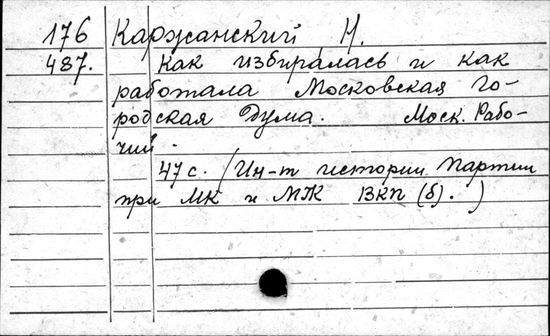 176 Каржанский Н.
487. Как избиралась и как
работала Московская Го-
родская Дума. Моск. Рабо-
чий.
47 с. (Ин-т истории партии
при МК и МЖ ВКП (б).)